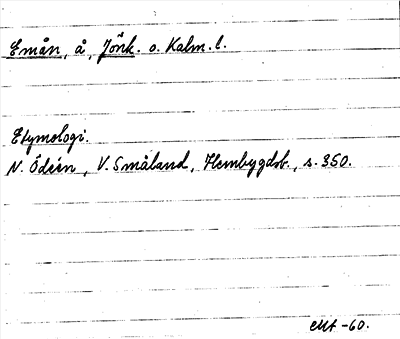 Emån, å, Jönk. o. Kalm. l.
Etymologi.
N. Ödéen, V. Småland, Hembygdsb., s. 350.
-60.